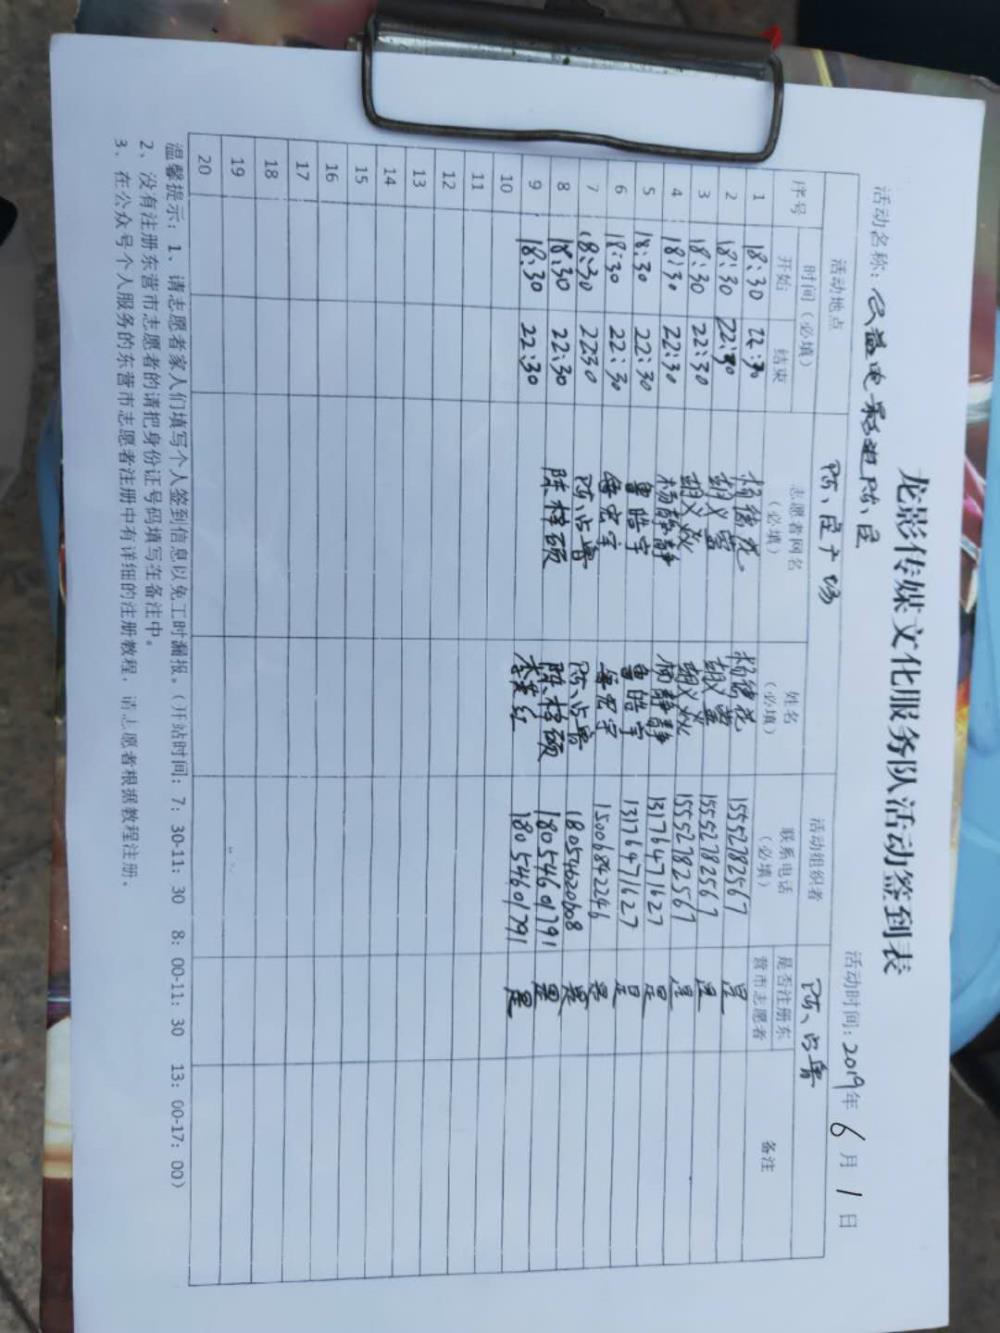 龙影传媒文化服务队活动签到表
活动名称：公益电影进陈庄 活动时间：2019年6月1日
活动地点 陈庄广场 活动组织者 陈占鲁
序号 时间（必填） 志愿者网名（必填） 姓名（必填） 联系电话（必填） 是否注册东营市志愿者 备注
开始 结束
1 18:30 22:30 杨德花 杨德花 15552782567 是
2 18:30 22:30 胡义
3 18:30 22:30 胡义 胡义 15552782567 是
4 18:30 22:30 杨静静 杨静静 15552782567 是
5 18:30 22:30 皓宇 皓宇 13176471627 是
6 18:30 22:30 宏宇 宏宇 13176471627 是
7 18:30 2230 陈占鲁 陈占鲁 15006842246 是
8 18:30 22:30 陈梓硕 陈梓硕 18054620608 是
9 18:30 22:30 李英红 18054601791 是
10
11
12
13
14
15
16
17
18
19
20
温馨提示：1、请志愿者家人们填写个人签到信息以免工时漏报。（开站时间：7：30-11：30 8：00-11：30 13：00-17：00）
2、没有注册东营市志愿者的请把身份证号码填写在备注中。
3、在公众号个人服务的东营市志愿者注册中有详细的注册教程，请志愿者根据教程注册。